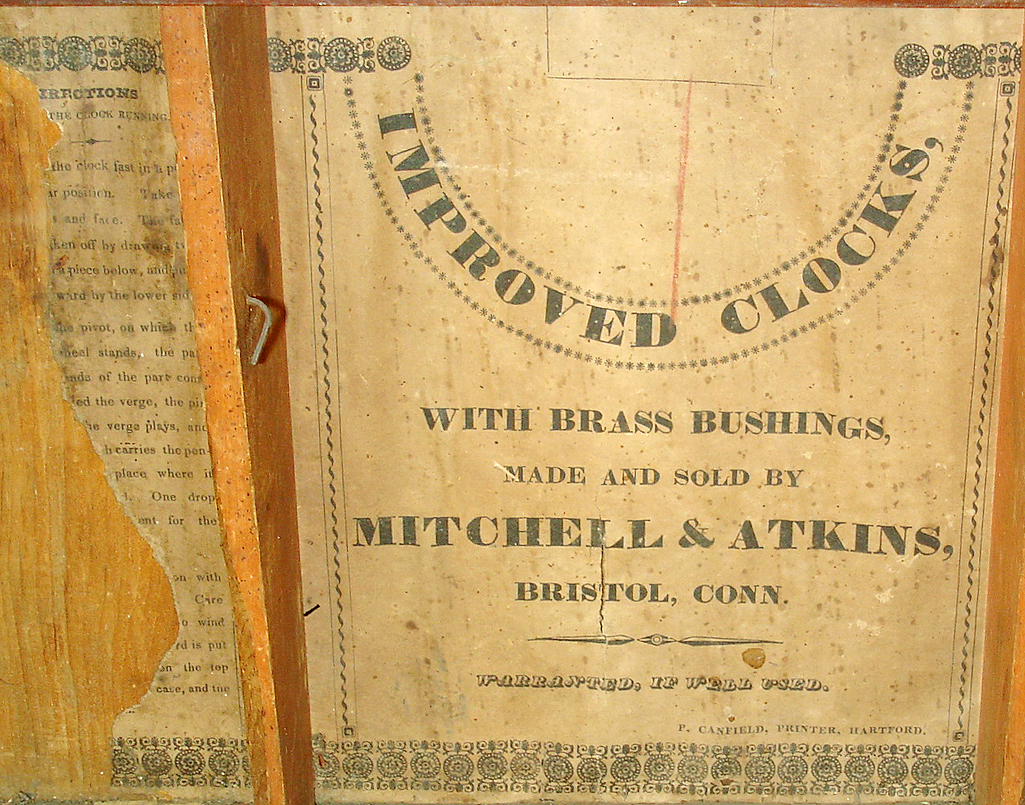 IRECTIONS
THE CLOCK RUNNING.
the clock fast in a p
ar position. Take
s and face. The fa
ken off by drawing
a piece below, and
ward by the lower sid
he pivot, on which th
heel stands, the pa
nds of the part con
led the verge, the pi
he verge plays, and
h carries the pen-
place where i
d. One drop
ent for the
on with
Care
o wind
rd is put
on the top
case, and the
IMPROVED CLOCKS,
WITH BRASS BUSHINGS,
MADE AND SOLD BY
MITCHELL & ATKINS,
BRISTOL, CONN.
WARRANTED, IF WELL USED.
P. CANFIELD, PRINTER, HARTFORD.